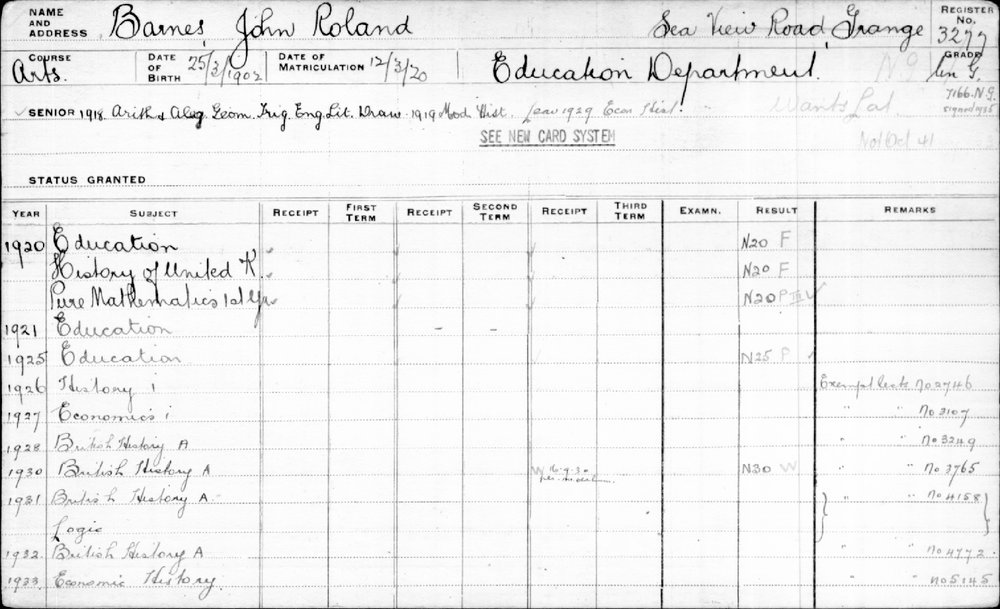 NAME AND ADDRESS Barnes, John Roland Sea View Road, Grange REGISTER No. 3277
COURSE Arts. DATE OF BIRTH 25/3/1902 DATE OF MATRICULATION 12/3/20 Education Department. N.G GRADE
7166.N.G.
signed 1935
SENIOR 1918 Arith & Alg. Geom. Trig. Eng. Lit. Draw. 1919 Mod. Hist. Leav 1929 Econ Hist. Wants Lat
SEE NEW CARD SYSTEM
Not Oct 41
STATUS GRANTED
YEAR SUBJECT RECEIPT FIRST TERM RECEIPT SECOND TERM RECEIPT THIRD TERM EXAMN. RESULT REMARKS
1920 Education N20 F
History of United K. N20 F
Pure Mathematics 1st Yr N20 P III
1921 Education - -
1925 Education N25 P
1926 History i Exempt lects no 2746
1927 Economics i " " no 3107
1928 British History A " " no 3249
1930 British History A W 16-9-30 N30 W " " no 3765
1931 British History A " " no 4158
Logic
1932 British History A " " no 4772
1933 Economic History " " no 5145